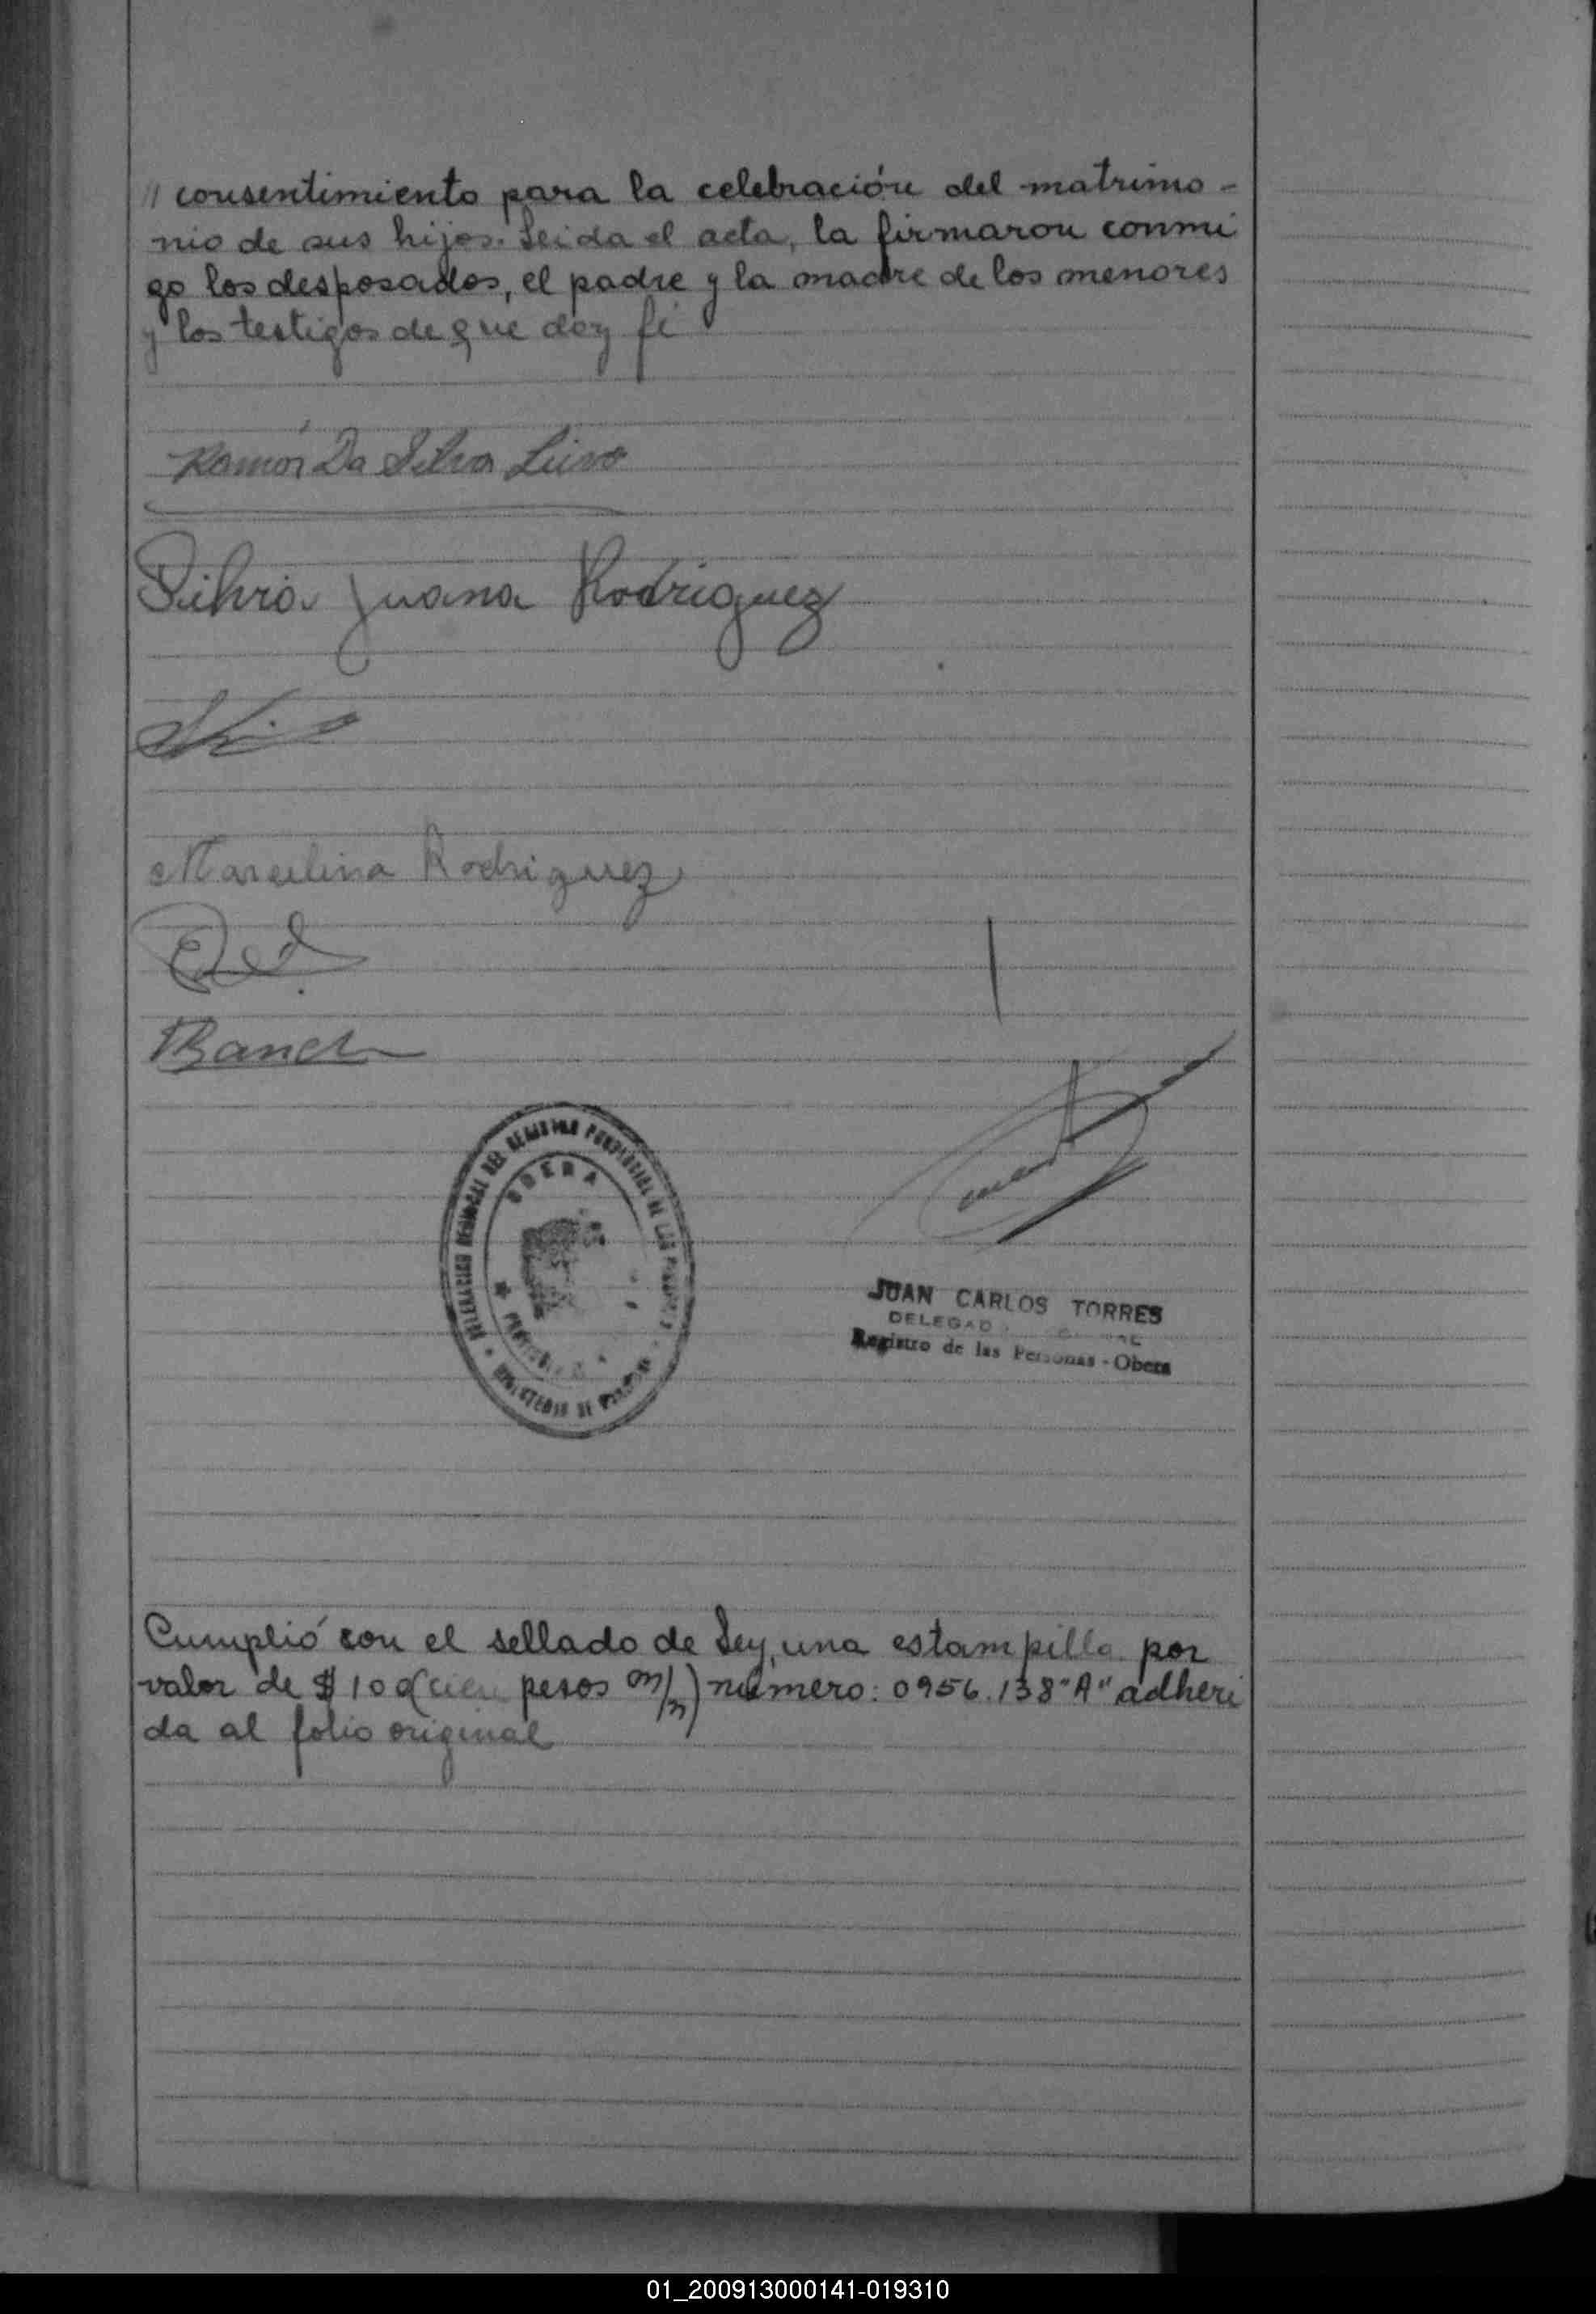 // consentimiento para la celebración del matrimo-
nio de sus hijos. Leida el acta, la firmaron conmi
go los desposados, el padre y la madre de los menores
y los testigos de que doy fé
Ramón Da Silva
Silvia Juana Rodriguez
Marcelina Rodriguez
DELEGACION REGIONAL DEL REGISTRO PROVINCIAL DE LAS PERSONAS
OBERA
JUAN CARLOS TORRES
Registro de las Personas - Obera
Cumplió con el sellado de Ley, una estampilla por
valor de $ 100 (cien pesos m/n) número: 0956.138 "A" adheri
da al folio original
01_200913000141-019310